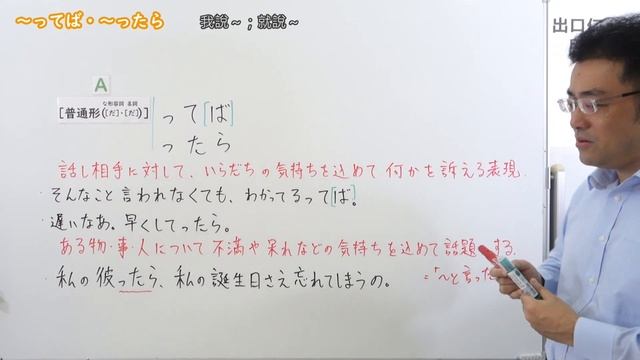 ～ってば・～ったら
我說～；就說～
出口仁
A
な形容詞 名詞
[普通形([だ]・[だ])]
って[ば]
ったら
話し相手に対して、いらだちの気持ちを込めて何かを訴える表現.
・そんなこと言われなくても、わかってるって[ば]。
・遅いなあ。早くしてったら。
ある物・事・人について不満や呆れなどの気持ちを込めて話題 する.
・私の彼ったら、私の誕生日さえ忘れてしまうの。
=「～と言った